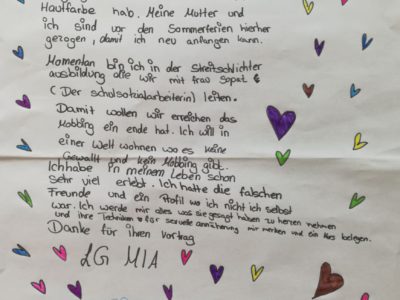 Hautfarbe hab. Meine Mutter und
ich sind vor den Sommerferien hierher
gezogen, damit ich neu anfangen kann.
Momentan bin ich in der Streitschlichter
ausbildung die wir mit frau Sopat
(Der schulsozialarbeiterin) leiten.
Damit wollen wir erreichen das
Mobbing ein ende hat. Ich will in
einer Welt wohnen wo es keine
Gewallt und kein Mobbing gibt.
Ich habe in meinem Leben schon
Sehr viel erlebt. Ich hatte die falschen
Freunde und ein Profil wo ich nicht ich selbst
war. Ich werde mir alles was sie gesagt haben zu herzen nehmen
und ihre Techniken für sexuelle annäherung mir merken und ein Kurs belegen.
Danke für ihren Vortrag
LG MIA